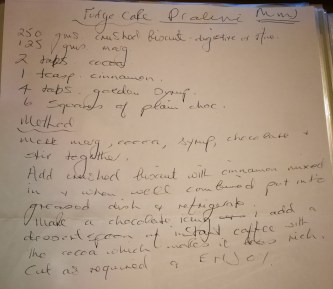 Fudge Cake Pralene (Mum)
250 gms crushed biscuits - digestive or
125 gms marg
2 tabs cocoa
1 teasp cinnamon.
4 tabs. golden syrup.
6 squares of plain choc.
Method
Melt marg, cocoa, syrup, chocolate &
stir together.
Add crushed biscuit with cinnamon mixed
in & when well combined put into
greased dish & refrigerate.
Make a chocolate icing I add a
dessertspoon of instant coffee with
the cocoa which makes it less rich.
Cut as required & ENJOY